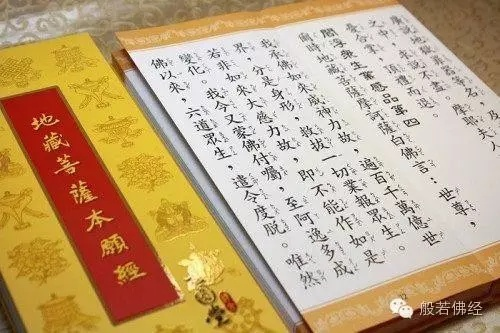 地藏菩薩本願經
廣說地獄罪器等
之中，求說不盡。摩耶夫人
愁憂合掌，頂禮而退。
閻浮眾生業感品第四
爾時地藏菩薩摩訶薩白佛言　世尊，
我承佛如來威神力故，遍百千萬億世
界，分是身形，救拔一切業報眾生。
若非如來大慈力故，即不能作如是
變化。我今又蒙佛付囑，至阿逸多成
佛以來，六道眾生，遣令度脫。唯然
般若佛经